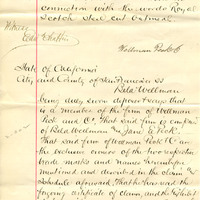 connection with the words Royal
Scotch Steel Cut Oatmeal.
Witness
Wellman Peck & Co
State of California
City and County of San Francisco SS
Bela Wellman
being duly sworn deposes & says that
he is a member of the firm of Wellman
Peck and Co. That said firm is composed
of Bela Wellman and E. Peck.
That said firm of Wellman Peck & Co are
the exclusive owners of the two respective
trade marks and names hereinbefore
mentioned and described in the claim and
schedule aforesaid. That he has read the
foregoing certificate of claim, and the exhibit